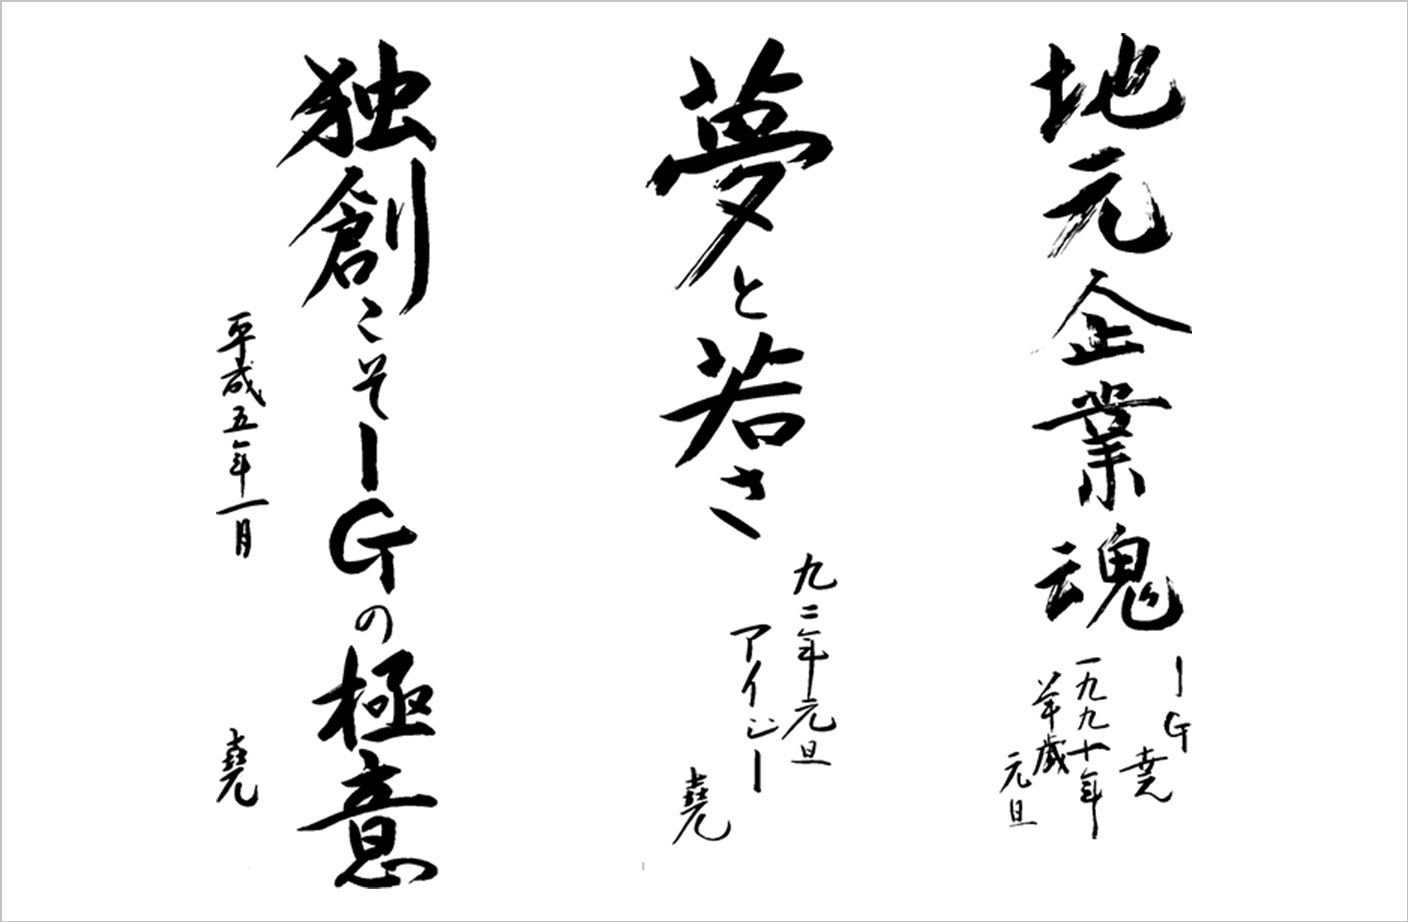 地元企業魂
IG
尭
一九九十年
羊歳
元旦
夢と若さ
九二年元旦
アイジー
堯
独創こそIGの極意
平成五年一月
堯